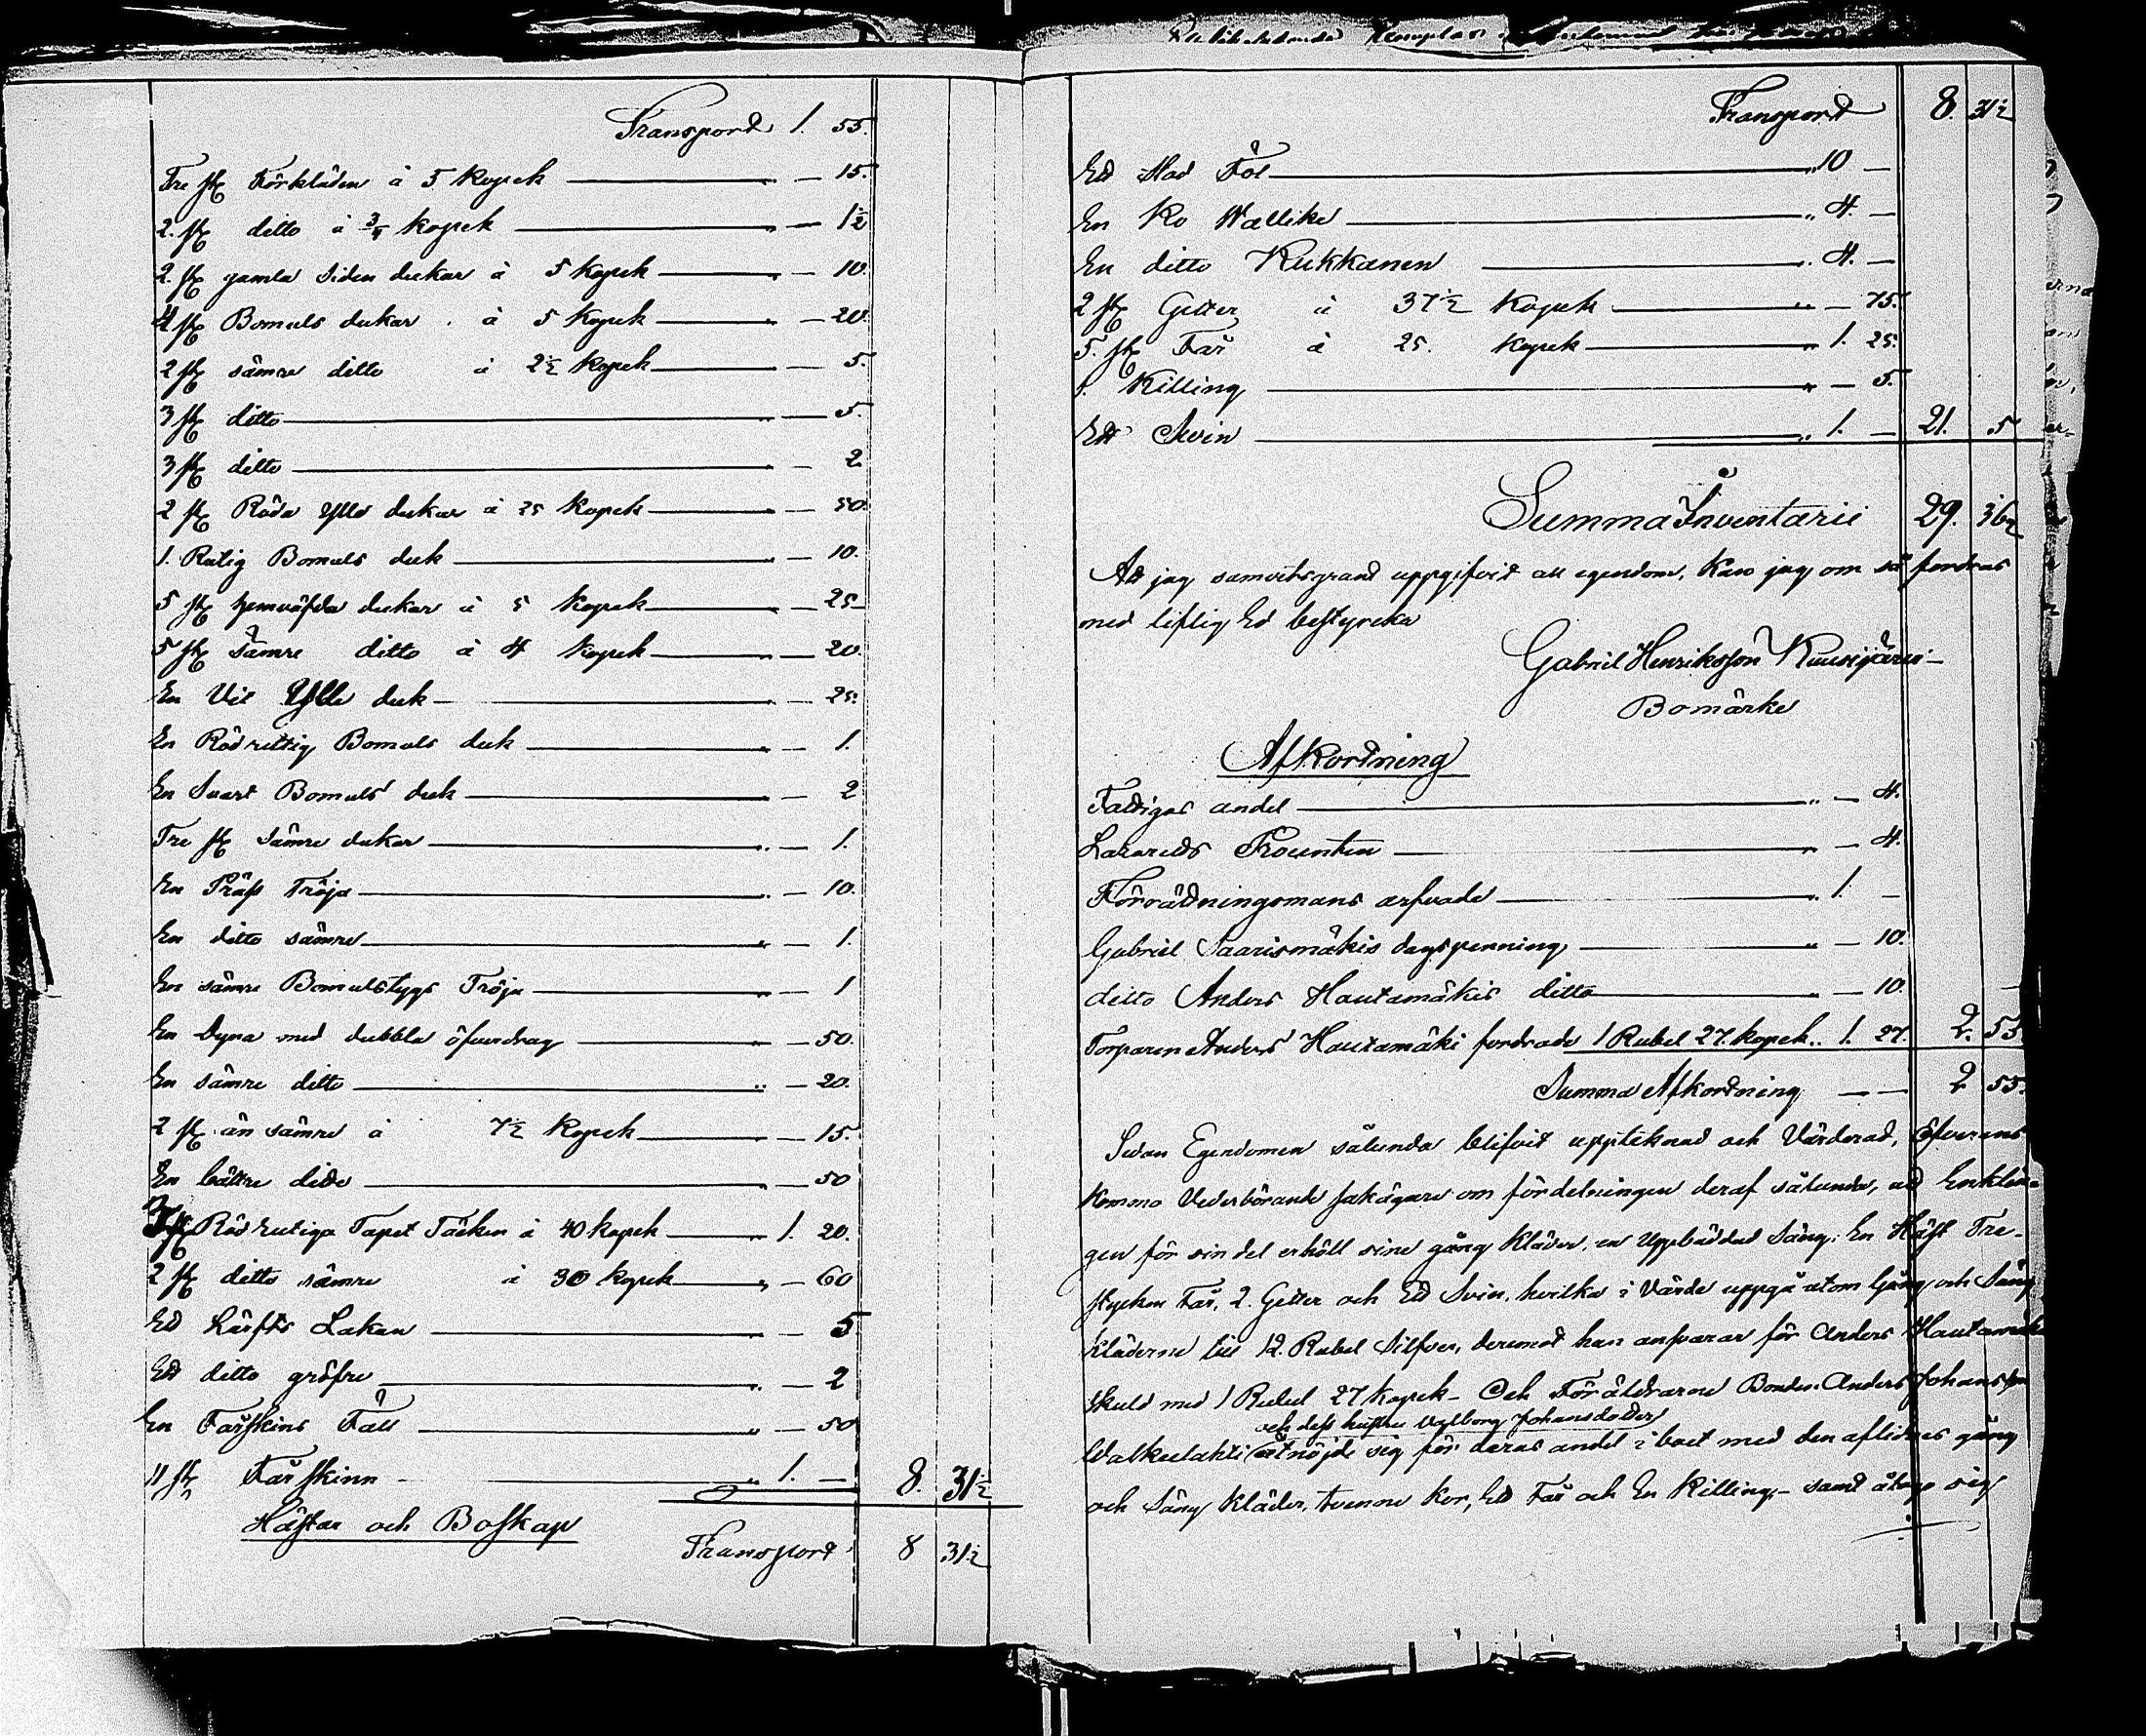 Transport 1. 55.
Tre st. Förkläden à 5 Kopek „ — 15.
2. st. ditto à ¾ Kopek „ — 1½
2. st. gamla Siden dukar à 5 Kopek „ — 10.
4 st. Bomuls dukar. à 5 Kopek „ — 20.
2 st. sämre ditto à 2½ Kopek „ — 5.
3 st. ditto „ — 5.
3 st. ditto „ — 2
2 st. Röda Ylle dukar à 25 Kopek „ — 50.
1. Rutig Bomuls duk „ — 10.
5 st. hemväfda dukar à 5 Kopek „ — 25
5 st. Sämre ditto à 4 Kopek „ — 20.
En Vit Ylle duk „ — 25.
En Röd ruttig Bomuls duk „ — 1.
En Svart Bomuls duk „ — 2
Tre st. Sämre dukar „ — 1.
En Tröja „ — 10.
En ditto sämre „ — 1.
En sämre Bomulstygs Tröja „ — 1
En Dyna med dubbla öfverdrag „ — 50.
En sämre ditto „ — 20.
2 st. än sämre à 7½ Kopek „ — 15.
En bättre ditto „ — 50
3 st. Röd rutiga Tapet Täcken à 40 kopek „ 1. 20.
2 st. ditto sämre à 30 kopek „ — 60
Ett Lärfts Lakan „ — 5
Ett ditto gröfre „ — 2
En Fårskins Fäll „ — 50
11 st. Får skinn „ 1. — 8. 31½
Hästar och Boskap
Transport 8 31½
Transport 8. 31½
Ett Stod Föl „ 10 —
En Ko Wallike „ 4. —
En ditto Kukkanen „ 4. —
2 st. Getter à 37½ Kopek „ — 75.
5. st. Får à 25. Kopek „ 1. 25.
1. Killing „ — 5.
Ett Svin „ 1. — 21. 5
Summa Inventarii 29. 36½
Att jag samvetsgrant uppgifvit all egendom, kan jag om så fordras
med liflig Ed bestyrka
Gabriel Henriksson Kuusijärvi
Bomärke
Afkortning
Fattigas andel „ — 4.
Lazaretts — „ — 4.
Förrättningsmans arfvode „ 1. —
Gabriel Saarismäkis dagspenning „ — 10.
ditto Anders Hautamäkis ditto — 10.
Torparen Anders Hautamäki fordrade 1 Rubel 27. kopek „ 1. 27. 2. 55
Summa Afkortning — 2 55.
Sedan Egendomen sålunda blifvit uppteknad och Värderad, öfverens
kommo Vederbörande sakägare om fördelningen deraf sålunda, att Enklin-
gen för sin del erhöll sine gång kläder, en Uppbäddad Säng, En Häst Tre-
stycken Får, 2. Getter och Ett Svin, hvilka i Värde uppgå utom Gång och Säng
kläderne till 12. Rubel Silfver, deremot han ansvarar för Anders Hautamäki
skuld med 1 Rubel 27 kopek — Och Föräldrarne Bonden Anders Johansson
och dess hustru Valborg Johansdotter
Walkeelahti åtnöjde sig för deras andel i boet med den aflidnes gång
och Säng kläder, tvenne Kor, Ett Får och En Killing — samt åtogo sig